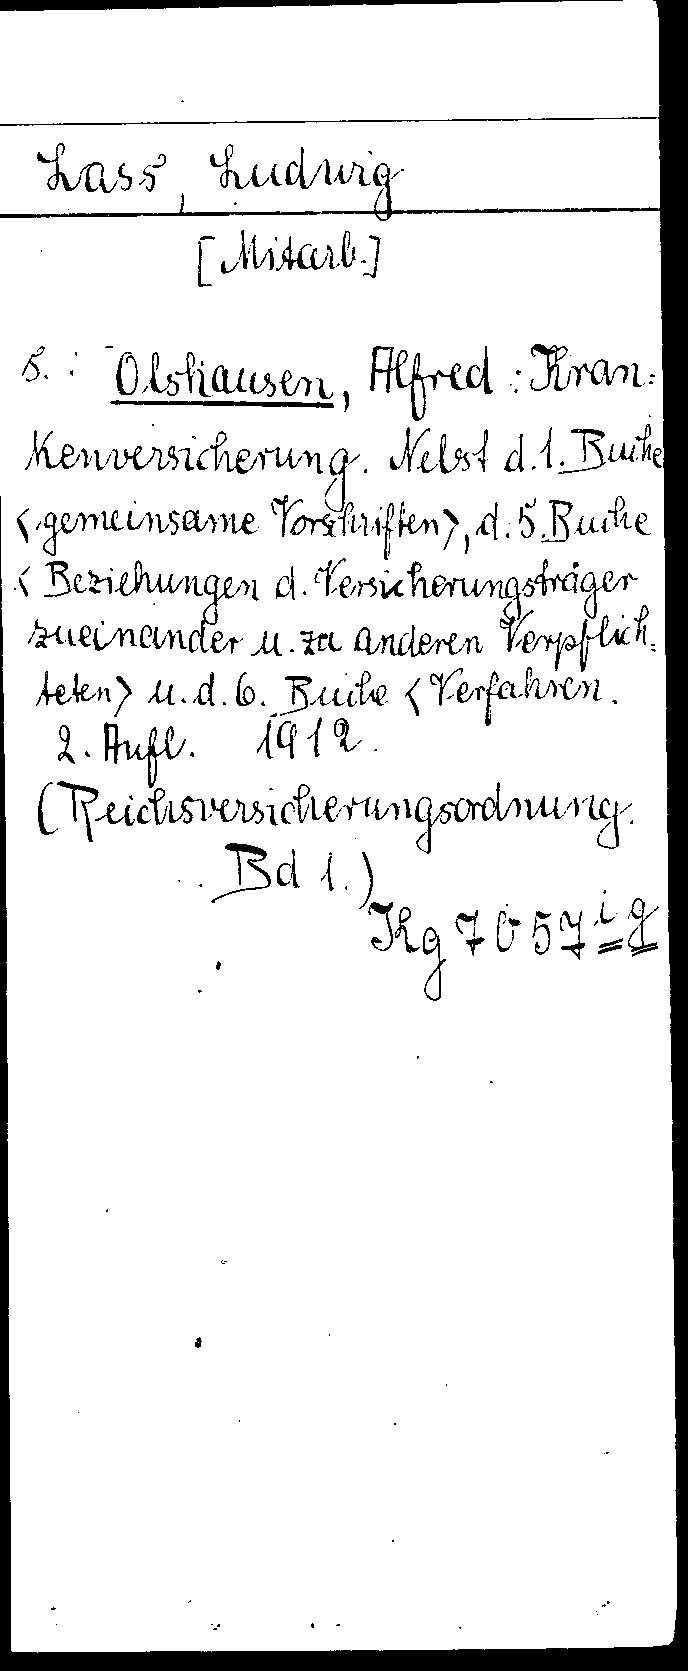 Lass, Ludwig
[Mitarb.]
s.: Olshausen, Alfred: Kran-
kenversicherung. Nebst d. 1. Buche
<gemeinsame Vorschriften>, d. 5. Buche
<Beziehungen d. Versicherungsträger
zueinander u. zu anderen Verpflich-
teten> u. d. 6. Buche <Verfahren.
2. Aufl. 1912.
(Reichsversicherungsordnung.
Bd 1.)
Kg 7657 i g